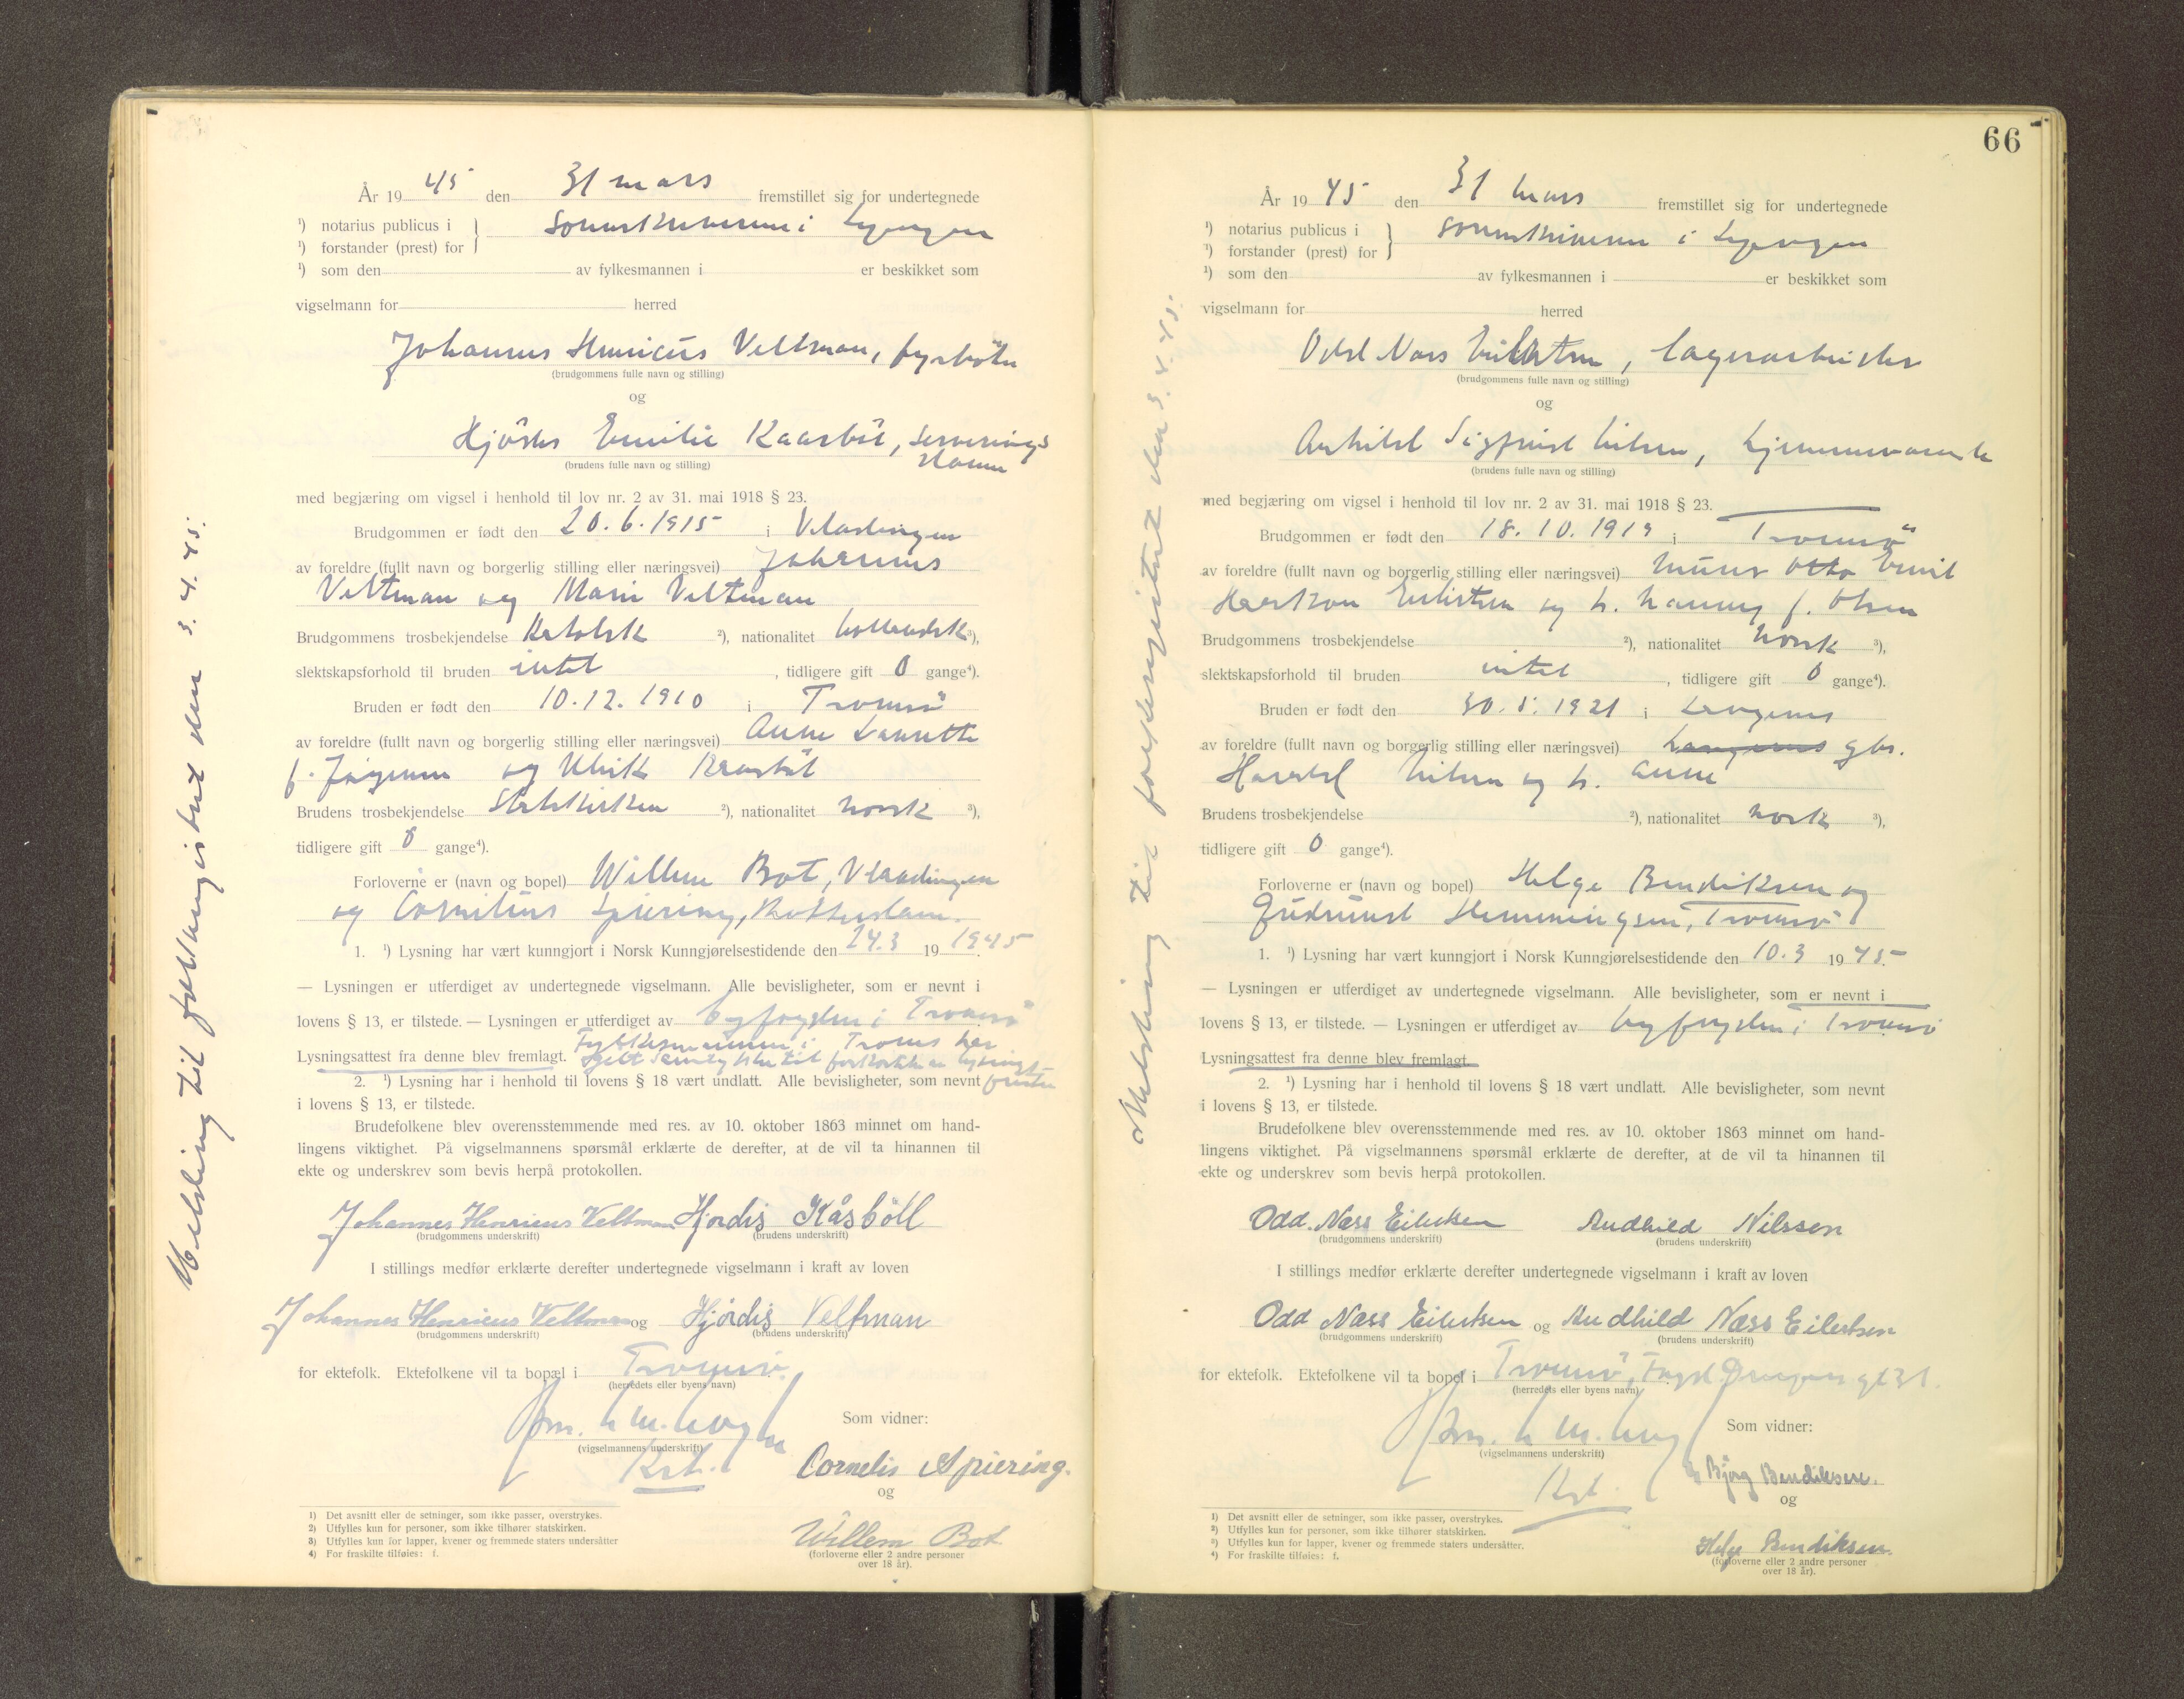 År 19 45 den 31 mars fremstillet sig for undertegnede
¹) notarius publicus i
¹) forstander (prest) for } sorenskriveren i Lyngen
¹) som den av fylkesmannen i er beskikket som
vigselmann for herred
Johannes Henricus Veltman, fyrböter
(brudgommens fulle navn og stilling)
og
Hjördis Emilie Kaarböl, serverings
dame
(brudens fulle navn og stilling)
med begjæring om vigsel i henhold til lov nr. 2 av 31. mai 1918 § 23.
Brudgommen er født den 20.6.1915 i Vlaardingen
av foreldre (fullt navn og borgerlig stilling eller næringsvei) Johannes
Veltman og Marie Veltman
Brudgommens trosbekjendelse Katolsk ²), nationalitet hollandsk ³),
slektskapsforhold til bruden intet , tidligere gift 0 gange⁴).
Bruden er født den 10.12.1910 i Tromsö
av foreldre (fullt navn og borgerlig stilling eller næringsvei) Anne
f. og Ulrik
Brudens trosbekjendelse Statskirken ²), nationalitet norsk ³),
tidligere gift 0 gange⁴).
Forloverne er (navn og bopel) Willem Bot, Vlaardingen
og Cornelius Spiering, Rotterdam.
1. ¹) Lysning har vært kunngjort i Norsk Kunngjørelsestidende den 24.3 19 1945
— Lysningen er utferdiget av undertegnede vigselmann. Alle bevisligheter, som er nevnt i
lovens § 13, er tilstede. — Lysningen er utferdiget av byfogden i Tromsö
Lysningsattest fra denne blev fremlagt. Fylkesmannen i Troms har
gitt samtykke til forkortelse av lysnings
fristen
2. ¹) Lysning har i henhold til lovens § 18 vært undlatt. Alle bevisligheter, som nevnt
i lovens § 13, er tilstede.
Brudefolkene blev overensstemmende med res. av 10. oktober 1863 minnet om hand-
lingens viktighet. På vigselmannens spørsmål erklærte de derefter, at de vil ta hinannen til
ekte og underskrev som bevis herpå protokollen.
Johannes Henricus Veltman Hjördis Kåsböll
(brudgommens underskrift) (brudens underskrift)
I stillings medfør erklærte derefter undertegnede vigselmann i kraft av loven
Johannes Henricus Veltman og Hjördis Veltman
(brudgommens underskrift) (brudens underskrift)
for ektefolk. Ektefolkene vil ta bopæl i Tromsö.
(herredets eller byens navn)
(vigselmannens underskrift)
Kst.
Som vidner:
Cornelis Spiering.
og
Willem Bot
(forloverne eller 2 andre personer
over 18 år).
1) Det avsnitt eller de setninger, som ikke passer, overstrykes.
2) Utfylles kun for personer, som ikke tilhører statskirken.
3) Utfylles kun for lapper, kvener og fremmede staters undersåtter
4) For fraskilte tilføies: f.
Melding til folkeregistret den 3.4.45.
66
År 19 45 den 31 mars fremstillet sig for undertegnede
¹) notarius publicus i
¹) forstander (prest) for } sorenskriveren i Lyngen
¹) som den av fylkesmannen i er beskikket som
vigselmann for herred
Odd Næss Eilertsen, lagerarbeider
(brudgommens fulle navn og stilling)
og
Audhild Sigfrid Nilsen, hjemmeværende
(brudens fulle navn og stilling)
med begjæring om vigsel i henhold til lov nr. 2 av 31. mai 1918 § 23.
Brudgommen er født den 18.10.1919 i Tromsö
av foreldre (fullt navn og borgerlig stilling eller næringsvei) murer Otto Emil
Haakon Eilertsen og h. Nanny f. Olsen
Brudgommens trosbekjendelse ²), nationalitet norsk ³),
slektskapsforhold til bruden intet , tidligere gift 0 gange⁴).
Bruden er født den 30.5.1921 i Langenes
av foreldre (fullt navn og borgerlig stilling eller næringsvei) Langenes gbr.
Harald Nilsen og h. Anne
Brudens trosbekjendelse ²), nationalitet norsk ³),
tidligere gift 0 gange⁴).
Forloverne er (navn og bopel) Helge Bendiksen og
Gudrund Hemmingsen, Tromsö
1. ¹) Lysning har vært kunngjort i Norsk Kunngjørelsestidende den 10.3 19 45
— Lysningen er utferdiget av undertegnede vigselmann. Alle bevisligheter, som er nevnt i
lovens § 13, er tilstede. — Lysningen er utferdiget av byfogden i Tromsö
Lysningsattest fra denne blev fremlagt.
2. ¹) Lysning har i henhold til lovens § 18 vært undlatt. Alle bevisligheter, som nevnt
i lovens § 13, er tilstede.
Brudefolkene blev overensstemmende med res. av 10. oktober 1863 minnet om hand-
lingens viktighet. På vigselmannens spørsmål erklærte de derefter, at de vil ta hinannen til
ekte og underskrev som bevis herpå protokollen.
Odd. Næss Eilertsen Audhild Nilssen
(brudgommens underskrift) (brudens underskrift)
I stillings medfør erklærte derefter undertegnede vigselmann i kraft av loven
Odd Næss Eilertsen og Audhild Næss Eilertsen
(brudgommens underskrift) (brudens underskrift)
for ektefolk. Ektefolkene vil ta bopel i Tromsö, Fogd Dreyersgt 31.
(herredets eller byens navn)
(vigselmannens underskrift)
Kst.
Som vidner:
Bjørg Bendiksen.
og
Helge Bendiksen.
(forloverne eller 2 andre personer
over 18 år).
¹) Det avsnitt eller de setninger, som ikke passer, overstrykes.
²) Utfylles kun for personer, som ikke tilhører statskirken.
³) Utfylles kun for lapper, kvener og fremmede staters undersåtter.
⁴) For fraskilte tilføies: f.
Melding til folkeregistret den 3.4.45.